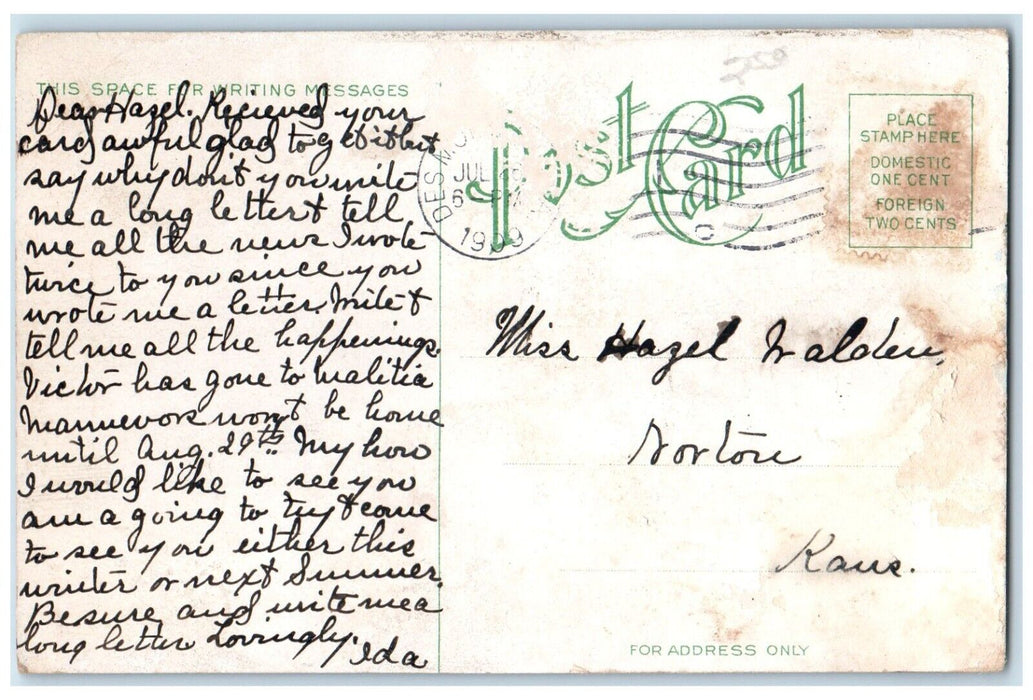 THIS SPACE FOR WRITING MESSAGES
Dear Hazel. Recieved your
card awful glad to get it but
say why don't you write
me a long letter & tell
me all the news I wrote
twice to you since you
wrote me a letter. Write &
tell me all the happenings.
Victor has gone to malitia
mannuevors won't be home
until Aug. 29th. My how
I would like to see you
am a going to try & come
to see you either this
winter or next Summer.
Be sure and write me a
long letter Lovingly.
Ida
Post Card
DES M
JUL
6 PM
1909
C
PLACE
STAMP HERE
DOMESTIC
ONE CENT
FOREIGN
TWO CENTS
Miss Hazel Walden,
Norton
Kans.
FOR ADDRESS ONLY